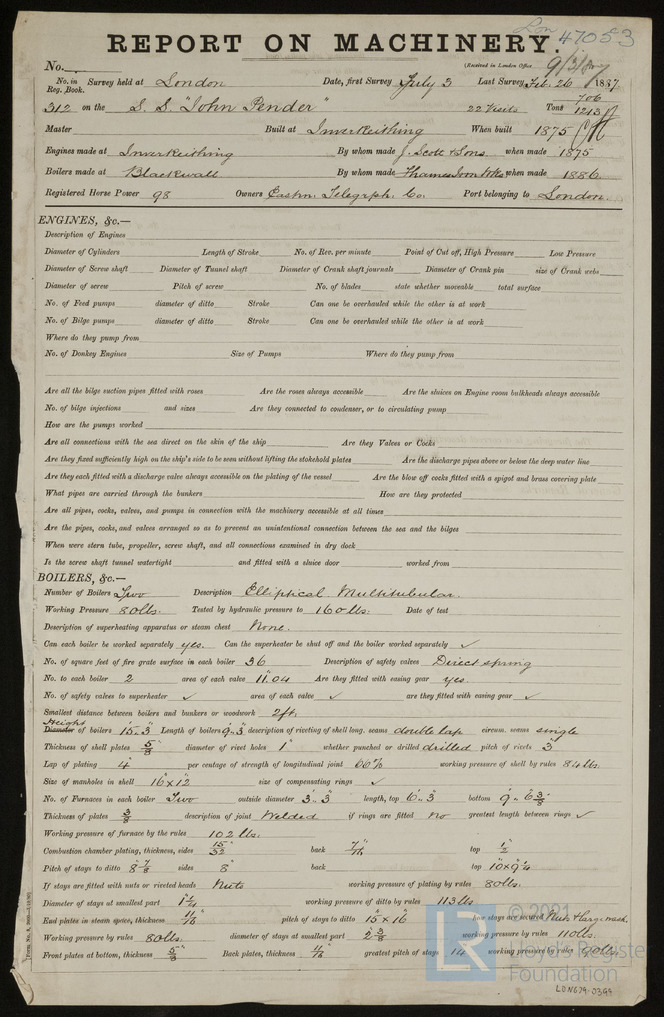 Lon 47053
REPORT ON MACHINERY.
No. (Received in London Office 9/3/87
No. in Reg. Book. Survey held at London Date, first Survey July 3 Last Survey Feb. 26 1887
312 on the S.S. "John Pender" 22 Visits Tons 706 1213
Master Built at Inverkeithing When built 1875
Engines made at Inverkeithing By whom made J. Scott & Sons. when made 1875
Boilers made at Blackwall By whom made Thames Iron Wks when made 1886.
Registered Horse Power 98 Owners Eastn. Telegrph. Co. Port belonging to London.
ENGINES, &c.—
Description of Engines
Diameter of Cylinders Length of Stroke No. of Rev. per minute Point of Cut off, High Pressure Low Pressure
Diameter of Screw shaft Diameter of Tunnel shaft Diameter of Crank shaft journals Diameter of Crank pin size of Crank webs
Diameter of screw Pitch of screw No. of blades state whether moveable total surface
No. of Feed pumps diameter of ditto Stroke Can one be overhauled while the other is at work
No. of Bilge pumps diameter of ditto Stroke Can one be overhauled while the other is at work
Where do they pump from
No. of Donkey Engines Size of Pumps Where do they pump from
Are all the bilge suction pipes fitted with roses Are the roses always accessible Are the sluices on Engine room bulkheads always accessible
No. of bilge injections and sizes Are they connected to condenser, or to circulating pump
How are the pumps worked
Are all connections with the sea direct on the skin of the ship Are they Valves or Cocks
Are they fixed sufficiently high on the ship's side to be seen without lifting the stokehold plates Are the discharge pipes above or below the deep water line
Are they each fitted with a discharge valve always accessible on the plating of the vessel Are the blow off cocks fitted with a spigot and brass covering plate
What pipes are carried through the bunkers How are they protected
Are all pipes, cocks, valves, and pumps in connection with the machinery accessible at all times
Are the pipes, cocks, and valves arranged so as to prevent an unintentional connection between the sea and the bilges
When were stern tube, propeller, screw shaft, and all connections examined in dry dock
Is the screw shaft tunnel watertight and fitted with a sluice door worked from
BOILERS, &c.—
Number of Boilers Two Description Elliptical Multitubular.
Working Pressure 80lbs. Tested by hydraulic pressure to 160lbs. Date of test
Description of superheating apparatus or steam chest None.
Can each boiler be worked separately yes. Can the superheater be shut off and the boiler worked separately ✓
No. of square feet of fire grate surface in each boiler 36 Description of safety valves Direct spring
No. to each boiler 2 area of each valve 11.04 Are they fitted with easing gear yes.
No. of safety valves to superheater ✓ area of each valve ✓ are they fitted with easing gear ✓
Smallest distance between boilers and bunkers or woodwork 2ft.
Height
Diameter of boilers 15'..3" Length of boilers 9'..3" description of riveting of shell long. seams double lap circum. seams single
Thickness of shell plates 5/8" diameter of rivet holes 1" whether punched or drilled drilled pitch of rivets 3"
Lap of plating 4" per centage of strength of longitudinal joint 66% working pressure of shell by rules 84lbs.
Size of manholes in shell 16"x12" size of compensating rings ✓
No. of Furnaces in each boiler Two outside diameter 3'..3" length, top 6'..3" bottom 9'..6 3/8"
Thickness of plates 3/8" description of joint Welded if rings are fitted No greatest length between rings ✓
Working pressure of furnace by the rules 102lbs.
Combustion chamber plating, thickness, sides 15/32" back 7/16" top 1/2"
Pitch of stays to ditto 8 7/8" sides 8" back top 10"x9 1/4"
If stays are fitted with nuts or riveted heads Nuts working pressure of plating by rules 80lbs.
Diameter of stays at smallest part 1 1/4" working pressure of ditto by rules 113lbs
End plates in steam space, thickness 11/16" pitch of stays to ditto 15"x16" how stays are secured Nuts & large wash.
Working pressure by rules 80lbs. diameter of stays at smallest part 2 3/8" working pressure by rules 110lbs.
Front plates at bottom, thickness 5/8" Back plates, thickness 11/16" greatest pitch of stays 14 working pressure by rules 80lbs.
LR
© 2021
Lloyd's Register
Foundation
LDN679-0399